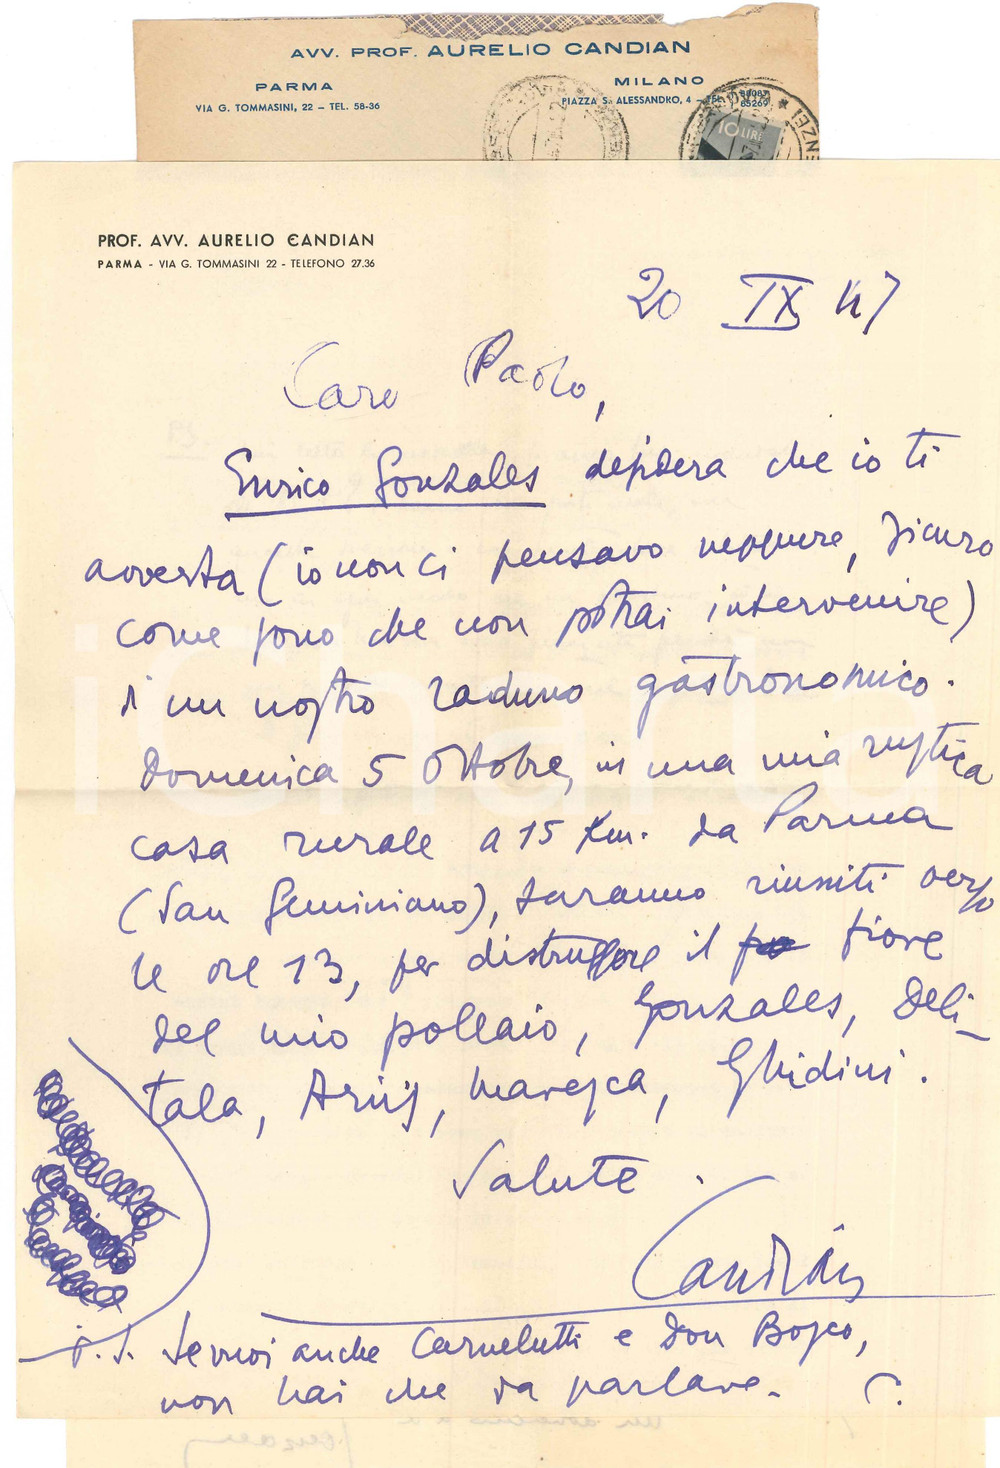 AVV. PROF. AURELIO CANDIAN
PARMA
VIA G. TOMMASINI, 22 – TEL. 58-36
MILANO
PIAZZA S. ALESSANDRO, 4 – TEL. 80087
85269
10 LIRE
PROF. AVV. AURELIO CANDIAN
PARMA - VIA G. TOMMASINI 22 - TELEFONO 27.36
20 IX 47
Caro Paolo,
Enrico Gonzales desidera che io ti
avverta (io non ci pensavo neppure, sicuro
come sono che non potrai intervenire)
d'un nostro raduno gastronomico.
Domenica 5 Ottobre, in una mia rustica
casa rurale a 15 Km. da Parma
(San Geminiano), saranno riuniti verso
le ore 13, per distruggere il fiore
del mio pollaio, Gonzales, Deli-
tala, Maresca, Ghidini.
Salute.
Candian
P.S. Se vuoi anche Carnelutti e Don Bosco,
non hai che da parlare. C.
iCharta